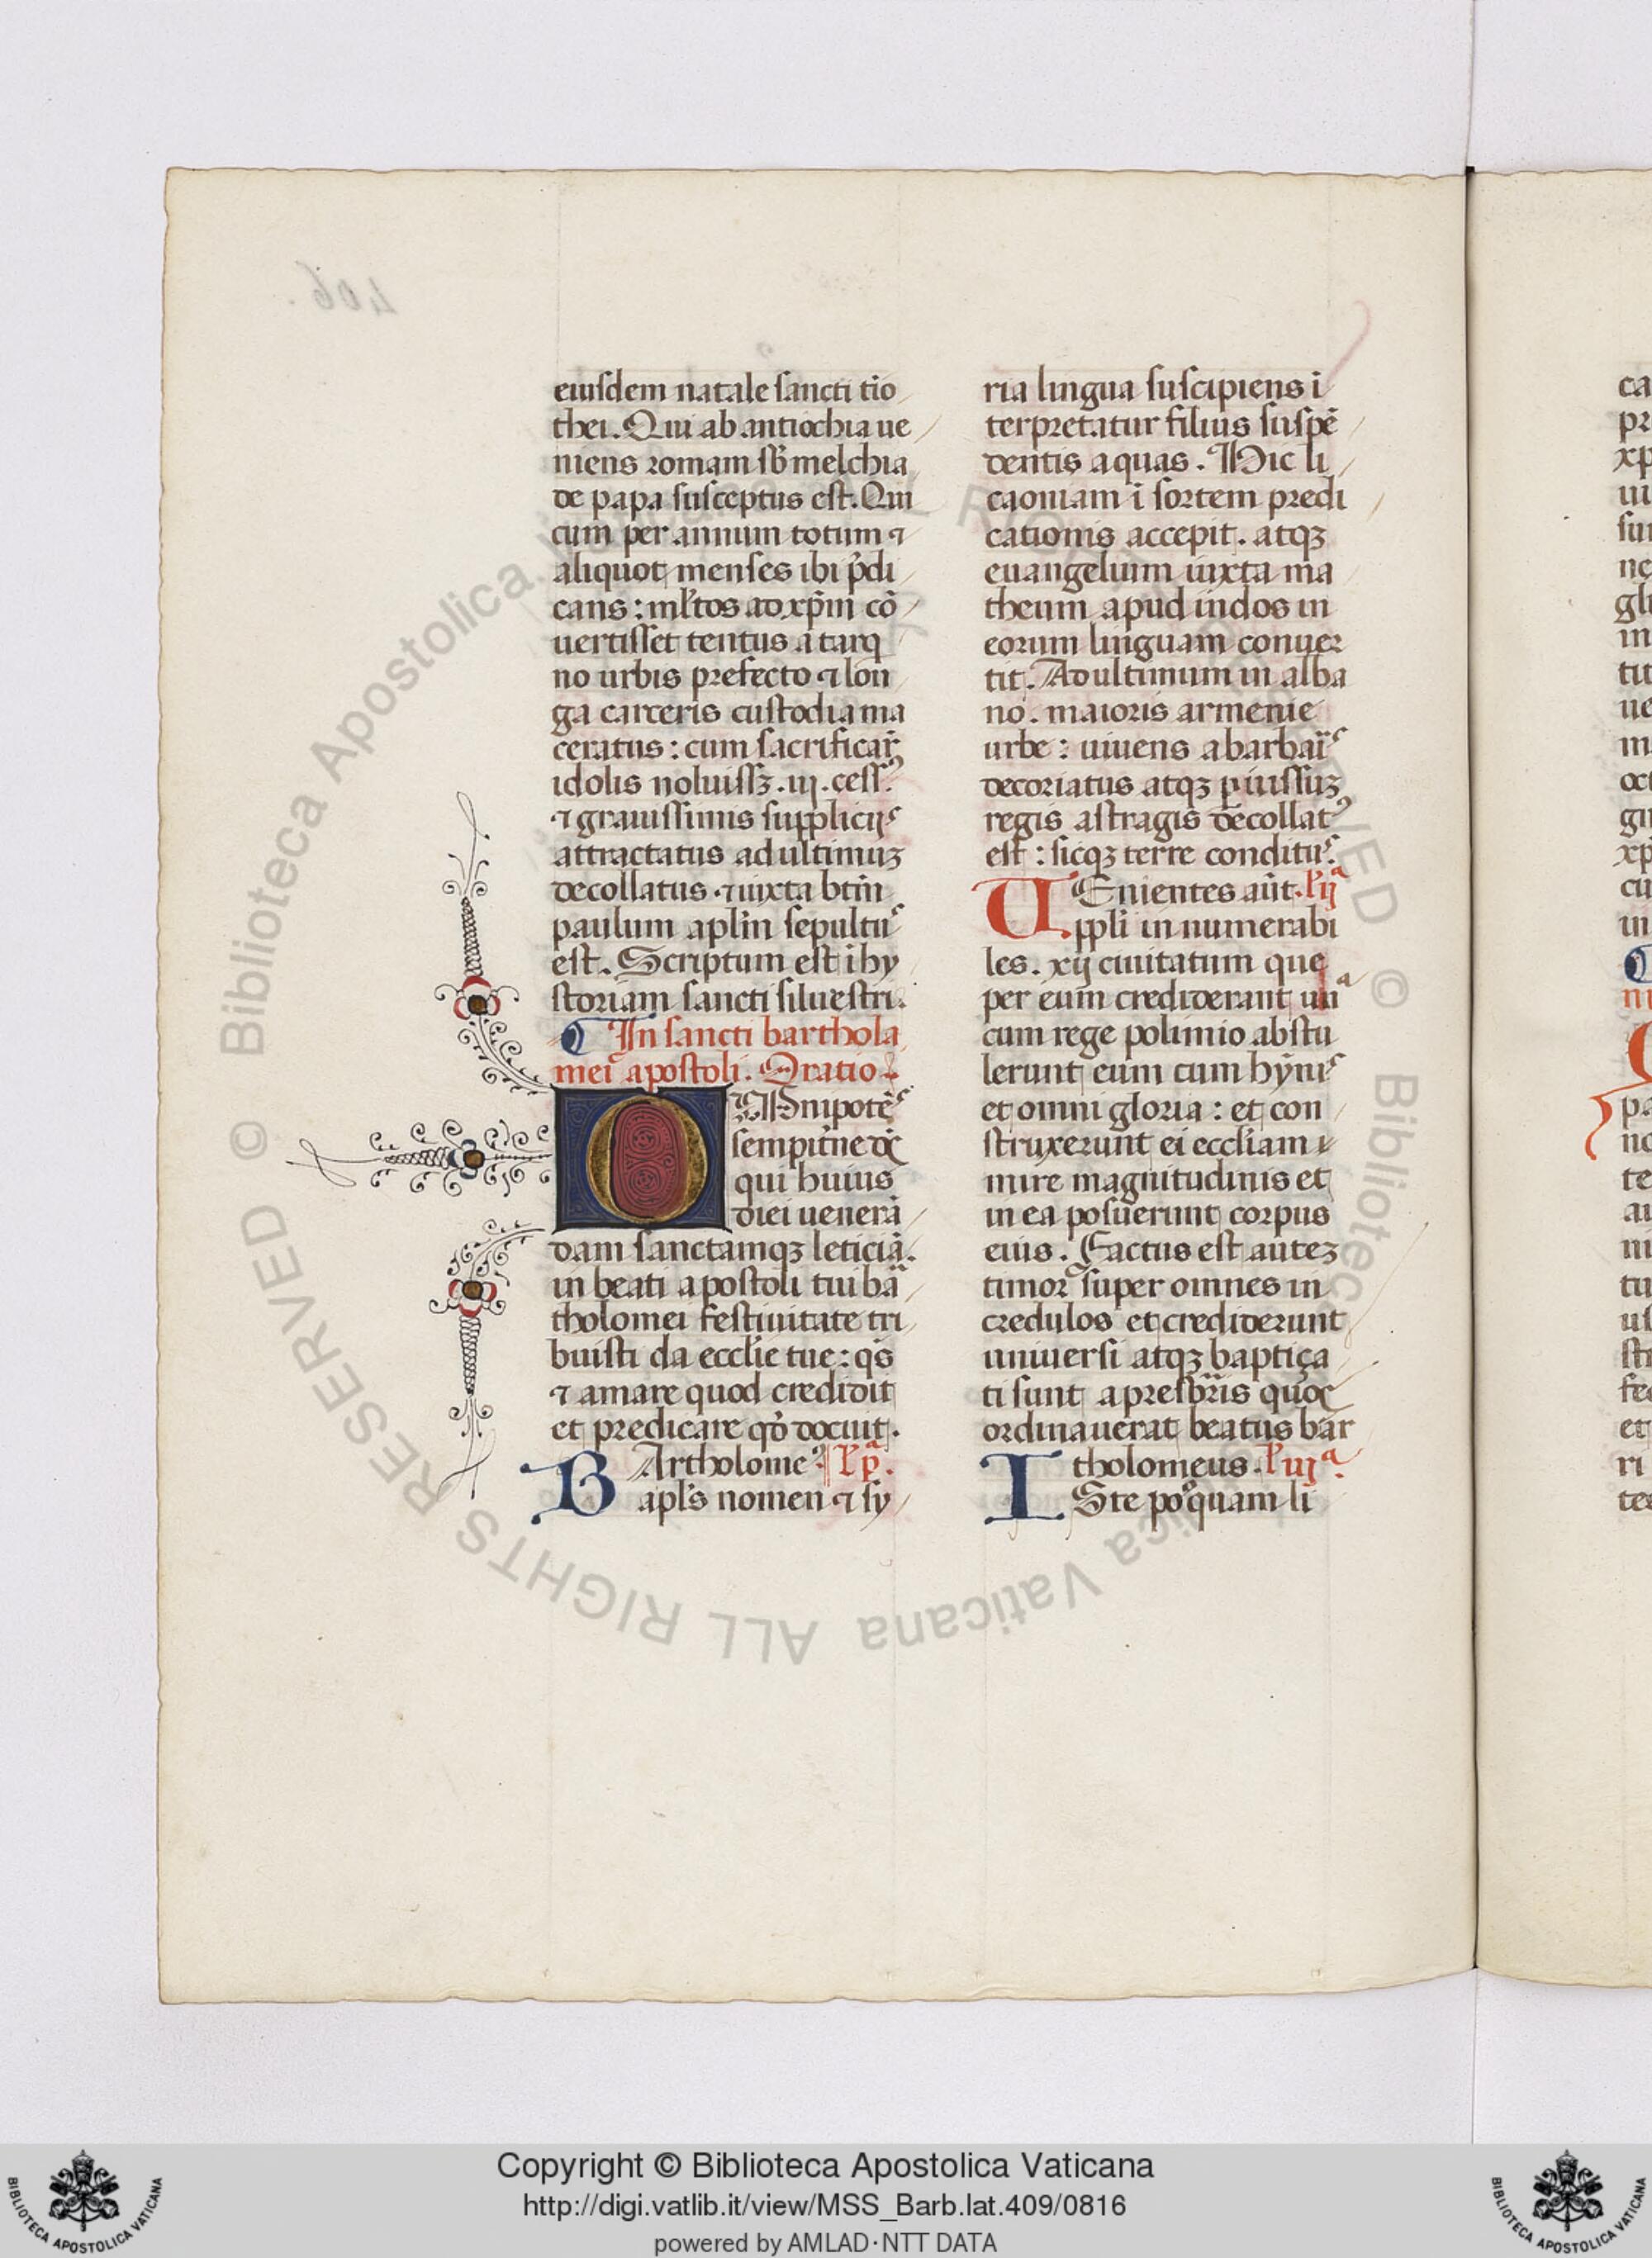 406.
eiusdem natale sancti tio
thei. Qui ab antiochia ue
niens romam sb̄ melchia
de papa susceptus est. Qui
cum per annum totum ⁊
aliquot menses ibi p̄di
cans: ml̓tos ad xp̄m cō
uertisset tentus a tarq
no urbis prefecto ⁊ lon
ga carceris custodia ma
ceratus: cum sacrificar̄
idolis noluissꝫ .iij. cess᷒
⁊ grauissimis supplicijs
attractatus ad ultimuꝫ
decollatus ⁊ iuxta btm̄
paulum aplm̄ sepultus
est. Scriptum est i hy
storiam sancti siluestri.
In sancti barthola
mei apostoli. Oratio
OMnipotēs
sempit̄ne ds̄
qui huius
diei uenerā
dam sanctamqꝫ leticiā.
in beati apostoli tui ba
tholomei festiuitate tri
buisti da ecclie tue: qs̄
⁊ amare quod credidit
et predicare qd̄ docuit.
BArtholome᷒ .l̓.pᵃ.
apl̓s nomen ⁊ sy
ria lingua suscipiens ī
terpretatur filius suspē
dentis aquas. Hic li
caoniam ī sortem predi
cationis accepit. atqꝫ
euangelium iuxta ma
theum apud indos in
eorum linguam conuer
tit. Ad ultimum in alba
no. maioris armenie
urbe: uiuens a barbaris
decoriatus atqꝫ ꝑ iussuꝫ
regis astragis decollat᷒
est: sicqꝫ terre conditus.
UEnientes aūt. l̓.ijᵃ
ppli in numerabi
les. xij ciuitatum que
per eum crediderant unᵃ
cum rege polimio abstu
lerunt eum cum hỹnis
et omni gloria: et con
struxerunt ei eccliam
mire magnitudinis et
in ea posuerunt corpus
eius. Factus est auteꝫ
timor super omnes in
credulos et crediderunt
uniuersi atqꝫ baptiça
ti sunt a presbr̄is quos
ordinauerat beatus bar
tholomeus. l̓.iijᵃ.
ISte po᷒quam li
Copyright © Biblioteca Apostolica Vaticana
http://digi.vatlib.it/view/MSS_Barb.lat.409/0816
powered by AMLAD·NTT DATA
© Biblioteca Apostolica Vaticana ALL RIGHTS RESERVED
BIBLIOTECA APOSTOLICA VATICANA
BIBLIOTECA APOSTOLICA VATICANA